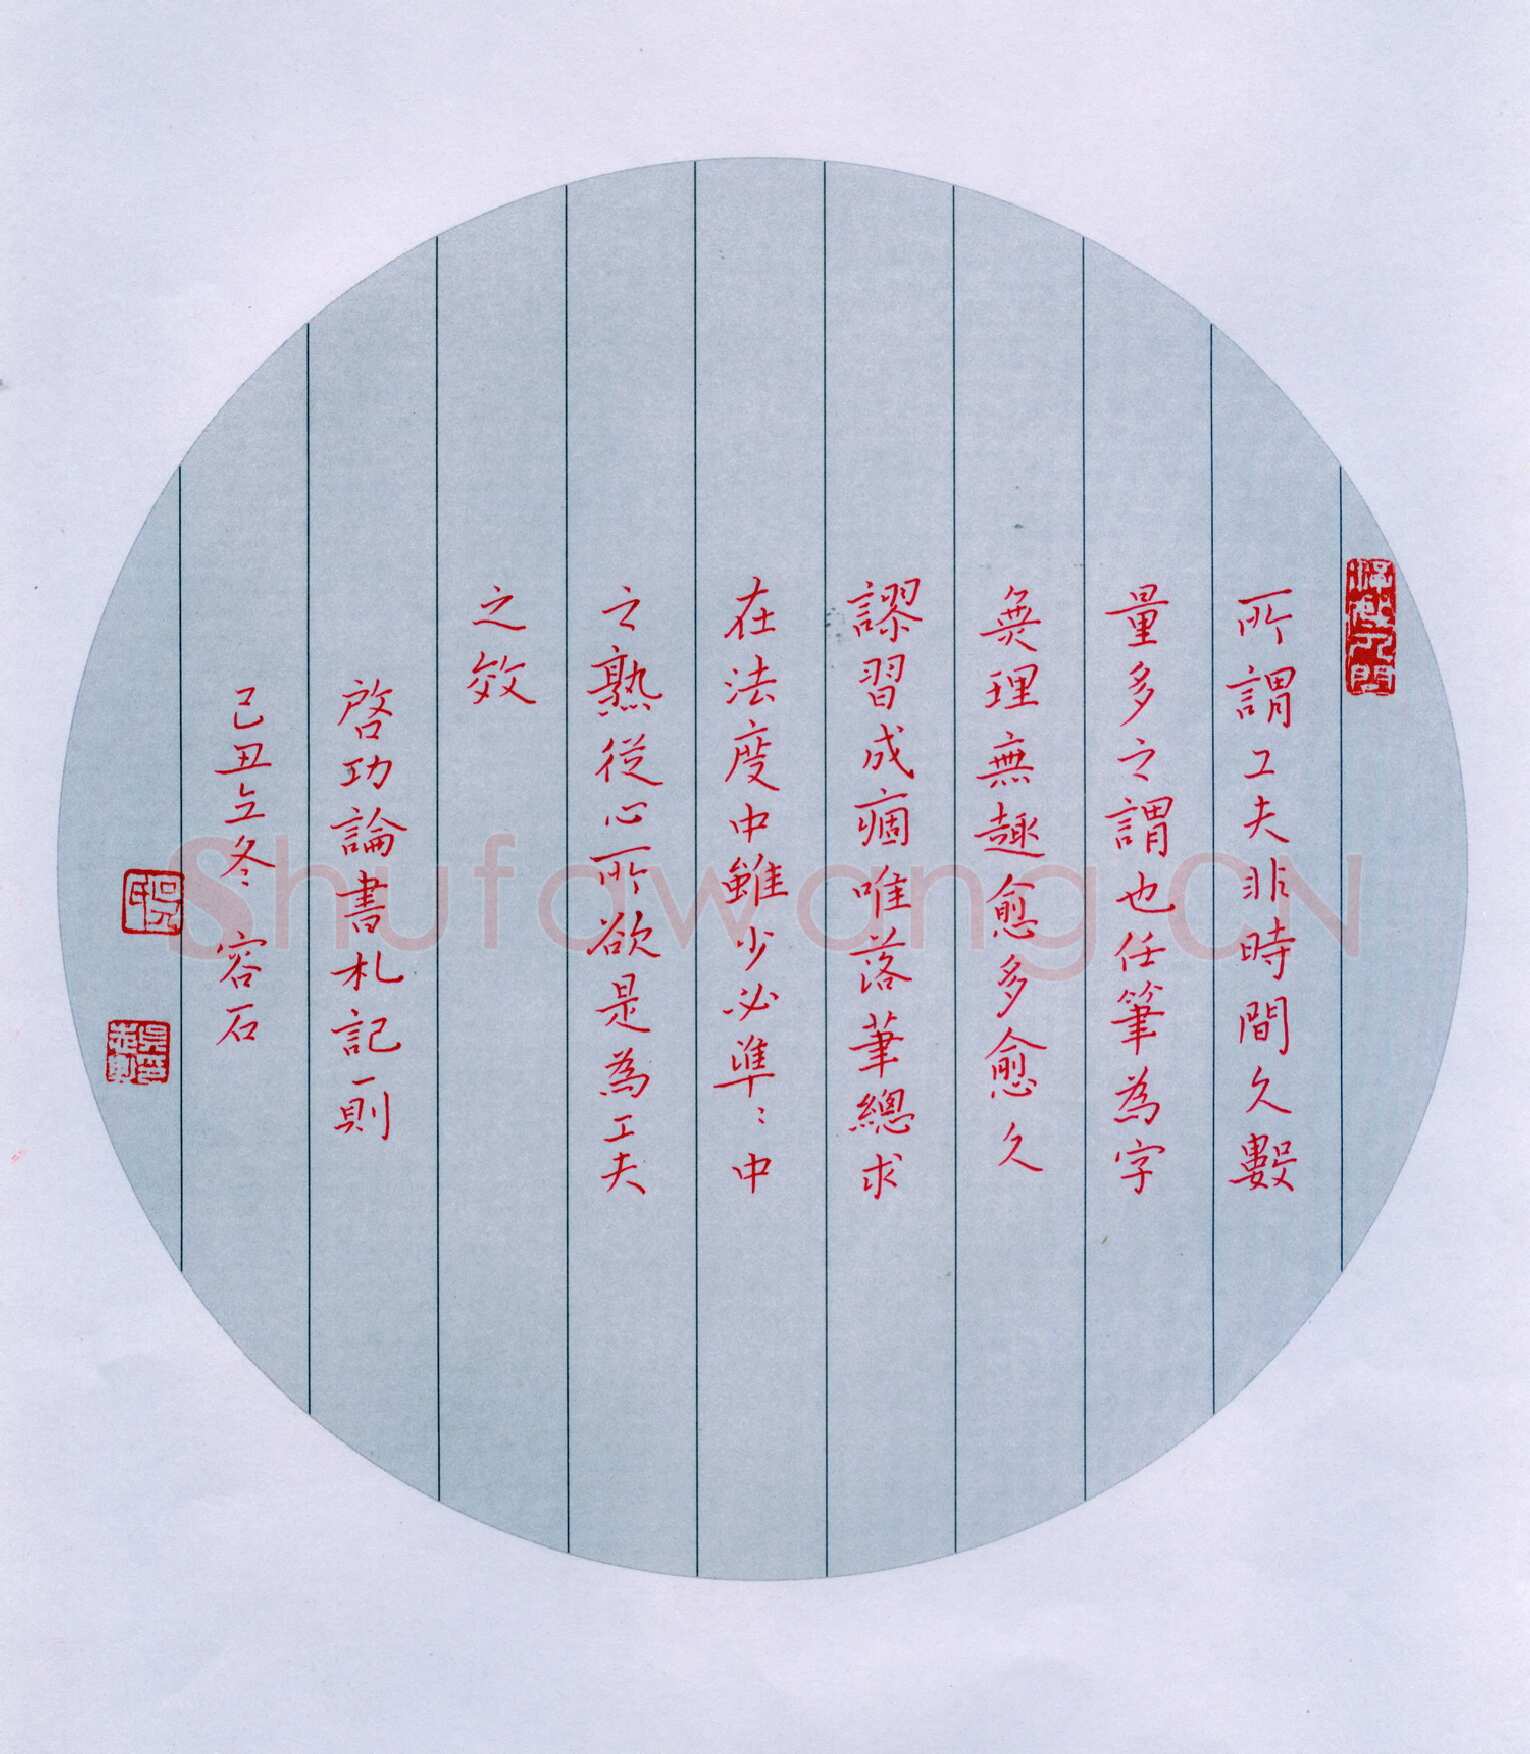 所謂工夫非時間久數
量多之謂也任筆為字
無理無趣愈多愈久
謬習成痼唯落筆總求
在法度中雖少必準〻中
之熟從心所欲是為工夫
之效
啓功論書札記一則
己丑立冬 容石
Shufawang.CN